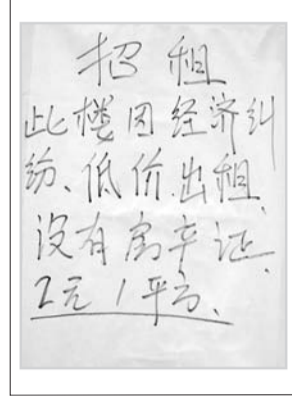 招租
此楼因经济纠
纷、低价出租、
没有房产证、
2元1平方、